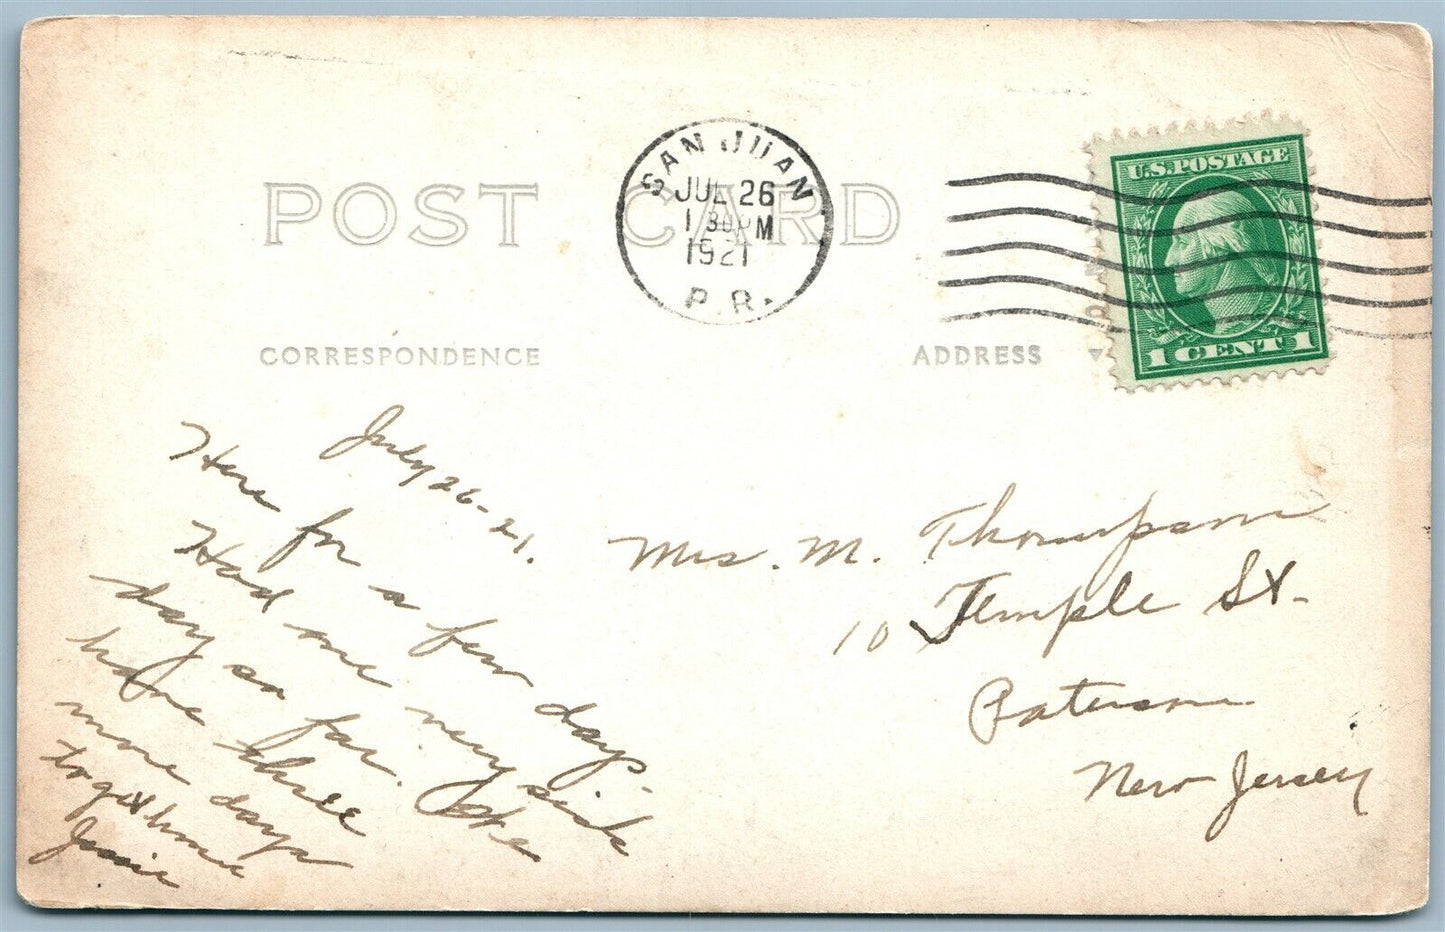 POST CARD
SAN JUAN
JUL 26
1 30PM
1921
P.R.
U.S. POSTAGE
1 CENT 1
CORRESPONDENCE
ADDRESS
July 26-21.
Here for a few days.
Had one very sick
day so far. We
have three
more days
to get home
Jessie
Mrs. M. Thompson
10 Temple St-
Paterson
New Jersey